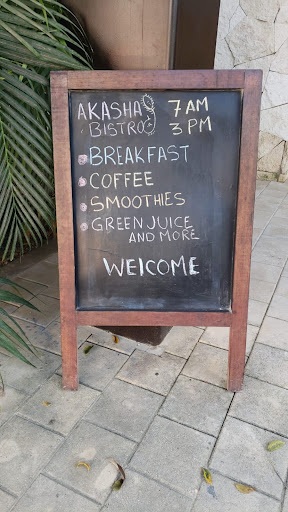 AKASHA 7 AM
BISTRO 3 PM
BREAKFAST
COFFEE
SMOOTHIES
GREEN JUICE
AND MORE
WELCOME